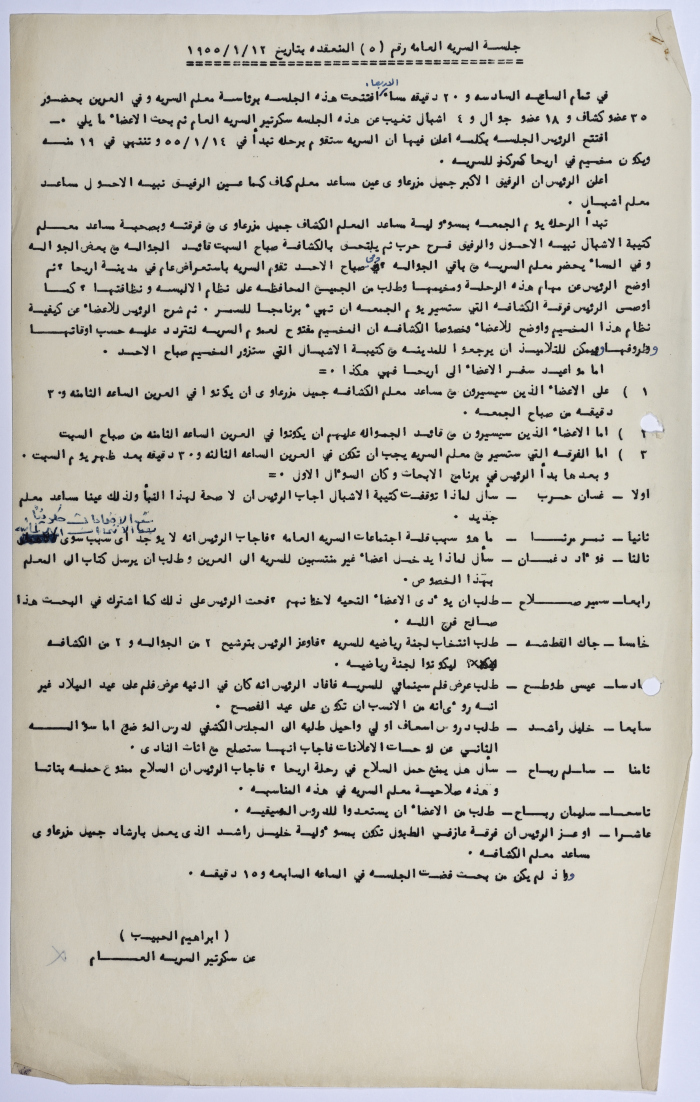 جلسة السريه العامه رقم (٥) المنعقده بتاريخ ١٩٥٥/١/١٢
الاربعاء
في تمام الساعه السادسه و ٢٠ دقيقه مساء افتتحت هذه الجلسه برئاسة معلم السريه و في العرين بحضور
٣٥ عضو كشاف و ١٨ عضو جوال و ٤ اشبال تغيب عن هذه الجلسه سكرتير السريه العام ثم بحث الاعضاء ما يلي :-
افتتح الرئيس الجلسه بكلمه اعلن فيها ان السريه ستقوم برحله تبدأ في ٥٥/١/١٤ وتنتهي في ١٩ منه
ويكون مخسيم في اريحا كمركز للسريه .
اعلن الرئيس ان الرفيق الاكبر جميل مزرعاوى عين مساعد معلم كشاف كما عين الرفيق نبيه الاحول مساعد
معلم اشبال .
تبدأ الرحله يوم الجمعه بمسؤولية مساعد المعلم الكشاف جميل مزرعاوى مع فرقته وبصحبة مساعد معلم
كتيبة الاشبال نبيه الاحول والرفيق فرح حرب ثم يلتحق بالكشافة صباح السبت قائد الجواله مع بعض الجواله
و في المساء يحضر معلم السريه مع باقي الجواله ؟ وفي صباح الاحد تقوم السريه باستعراض عام في مدينة اريحا ؟ ثم
اوضح الرئيس عن مهام هذه الرحلة ومخيمها وطلب من الجميع المحافظه على نظام الالبسه و نظافتها ؟ كما
اوصى الرئيس فرقة الكشافه التي ستسير يوم الجمعه ان تهيء برنامجا للسمر . ثم شرح الرئيس للاعضاء عن كيفية
نظام هذا المخسيم واوضح للاعضاء وخصوصا الكشافه ان المخسيم مفتوح لعموم السريه لتتردد عليه حسب اوقاتها
وظروفها ويمكن للتلاميذ ان يرجعوا للمدينه مع كتيبة الاشبال التي ستزور المخسيم صباح الاحد .
اما مواعيد سفر الاعضاء الى اريحا فهي هكذا :=
١ ) على الاعضاء الذين سيسيرون مع مساعد معلم الكشافه جميل مزرعاوى ان يكونوا في العرين الساعه الثامنه و ٣٠
دقيقه من صباح الجمعه .
٢ ) اما الاعضاء الذين سيسيرون مع قائد الجواله عليهم ان يكونوا في العرين الساعه الثامنه من صباح السبت
٣ ) اما الفرقه التي ستسير مع معلم السريه يجب ان تكون في العرين الساعه الثالثه و ٣٠ دقيقه بعد ظهر يوم السبت .
و بعدها بدأ الرئيس في برنامج الابحاث و كان السؤال الاول :=
اولا – غسان حرب – سأل لماذا توقفت كتيبة الاشبال اجاب الرئيس ان لا صحة لهذا النبأ ولذلك عينا مساعد معلم
جديد .
ثانيا – نمر مرتا – ما هو سبب قلة اجتماعات السريه العامه ؟ فاجاب الرئيس انه لا يوجد أى سبب سوى
ثالثا – فؤاد دغمان – سأل لماذا يدخل اعضاء غير منتسبين للسريه الى العرين وطلب ان يرسل كتاب الى المعلم
بهذا الخصوص .
رابعا – سمير صلاح – طلب ان يؤدى الاعضاء التحيه لاخوانهم ؟ فحث الرئيس على ذلك كما اشترك في البحث هذا
صالح فرج الله .
خامسا – جاك القطشه – طلب انتخاب لجنة رياضيه للسريه ؟ فاوعز الرئيس بترشيح ٢ من الجواله و ٢ من الكشافه
ليكونوا لجنة رياضيه .
سادسا – عيسى طوطح – طلب عرض فلم سينمائي للسريه فافاد الرئيس انه كان في النيه عرض فلم على عيد الميلاد غير
انه روءى انه من الانسب ان تكون على عيد الفصح .
سابعا – خليل راشد – طلب دروس اسعاف اولي واحيل طلبه الى المجلس الكشفي لدرس الموضوع اما سؤاله
الثاني عن لوحات الاعلانات فاجاب انها ستصلح مع اثاث النادى .
ثامنا – سالم رباح – سأل هل يمنع حمل السلاح في رحلة اريحا ؟ فاجاب الرئيس ان السلاح ممنوع حمله بتاتا
و هذه صلاحية معلم السريه في هذه المناسبه .
تاسعا – سليمان رباح – طلب من الاعضاء ان يستعدوا للدروس الصيفيه .
عاشرا – اوعز الرئيس ان فرقة عازفي الطبول تكون بمسؤولية خليل راشد الذى يعمل بارشاد جميل مزرعاوى
مساعد معلم الكشافه .
واذ لم يكن من بحث فضت الجلسه في الساعه السابعه و ١٥ دقيقه .
( ابراهيم الحبيب )
عن سكرتير السريه العام